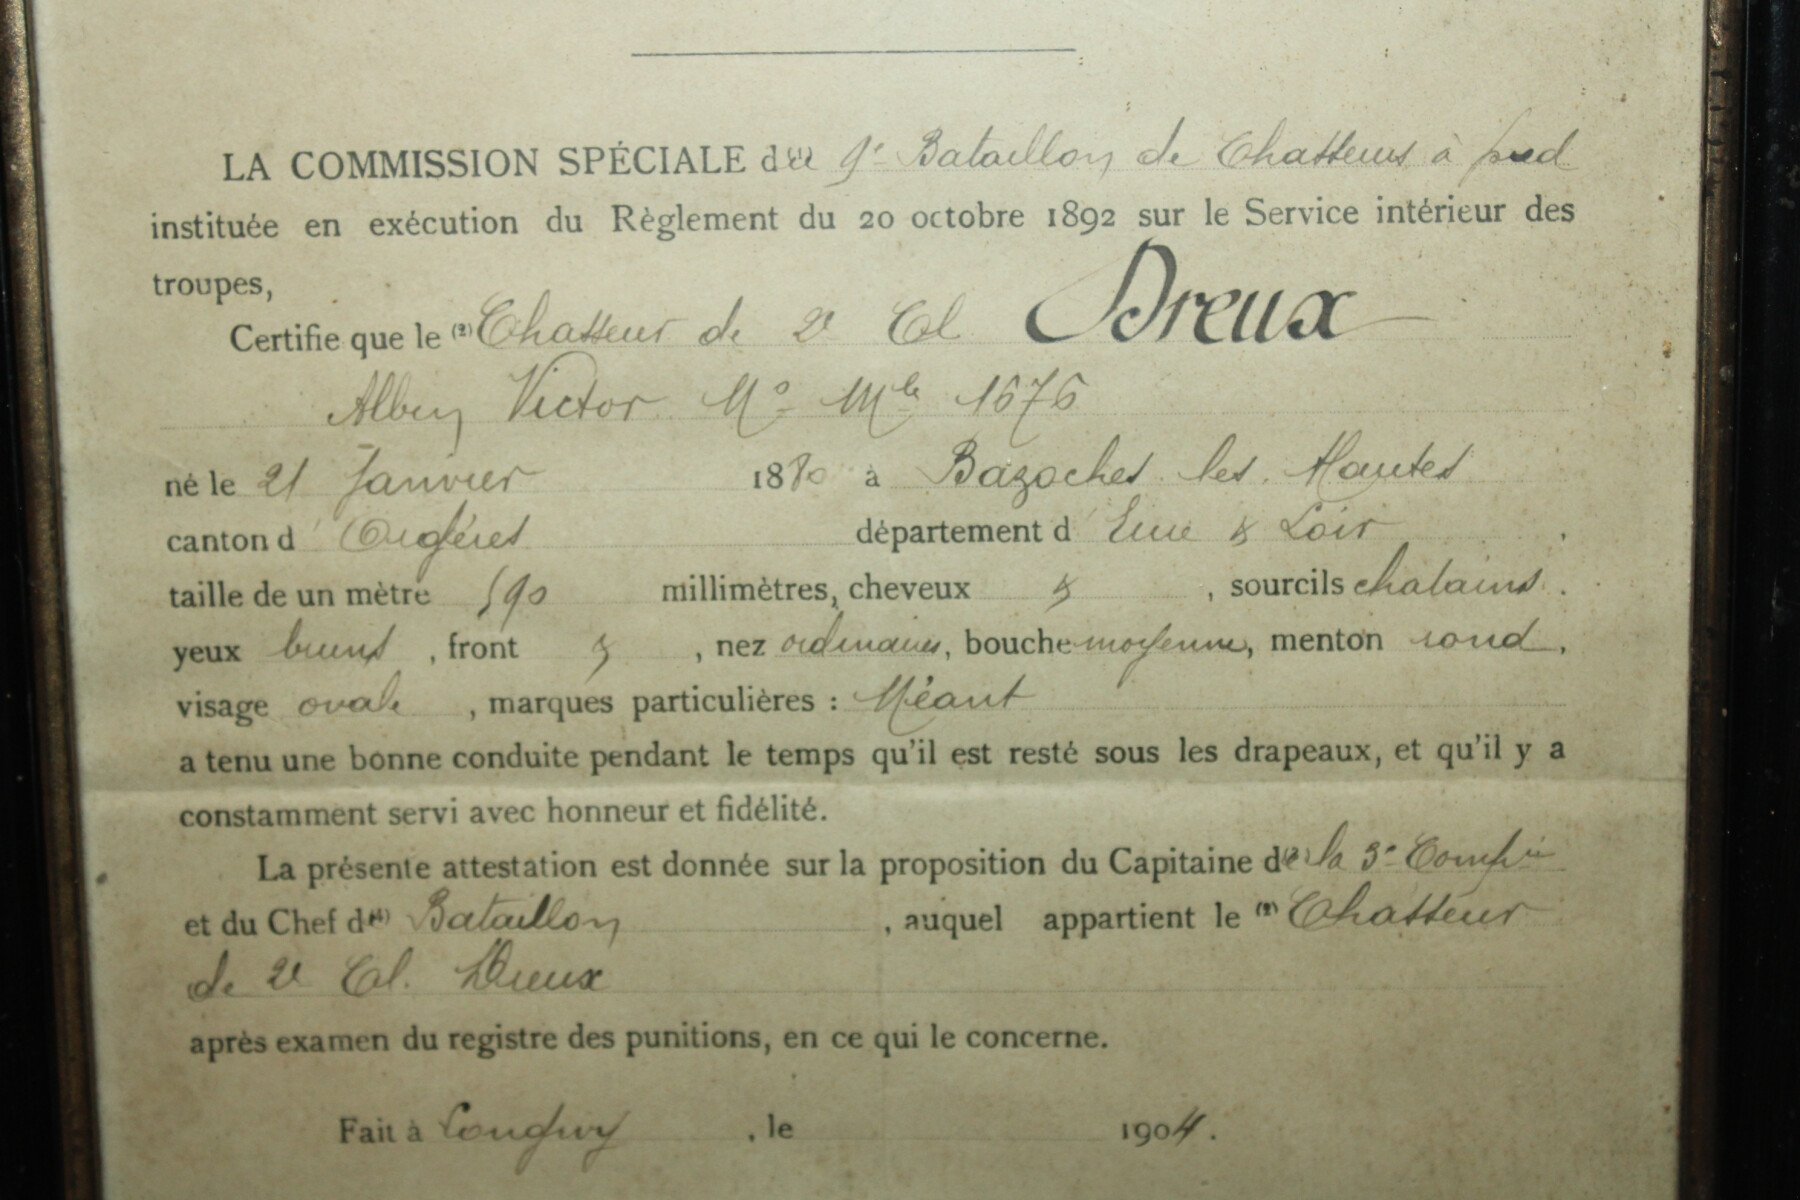 LA COMMISSION SPÉCIALE d(1)u 9e Bataillon de Chasseurs à pied
instituée en exécution du Règlement du 20 octobre 1892 sur le Service intérieur des
troupes,
Certifie que le (2) Chasseur de 2e Cl Dreux
Albin Victor No Mle 1676
né le 21 Janvier 1880 à Bazoches les Hautes
canton d'Orgères département d'Eure & Loir,
taille de un mètre 590 millimètres, cheveux &, sourcils chatains.
yeux bruns, front &, nez ordinaire, bouche moyenne, menton rond,
visage ovale, marques particulières : Néant
a tenu une bonne conduite pendant le temps qu'il est resté sous les drapeaux, et qu'il y a
constamment servi avec honneur et fidélité.
La présente attestation est donnée sur la proposition du Capitaine de(3) la 3e Compie
et du Chef de(4) Bataillon, auquel appartient le (2) Chasseur
de 2e Cl. Dreux
après examen du registre des punitions, en ce qui le concerne.
Fait à Longwy, le 1904.